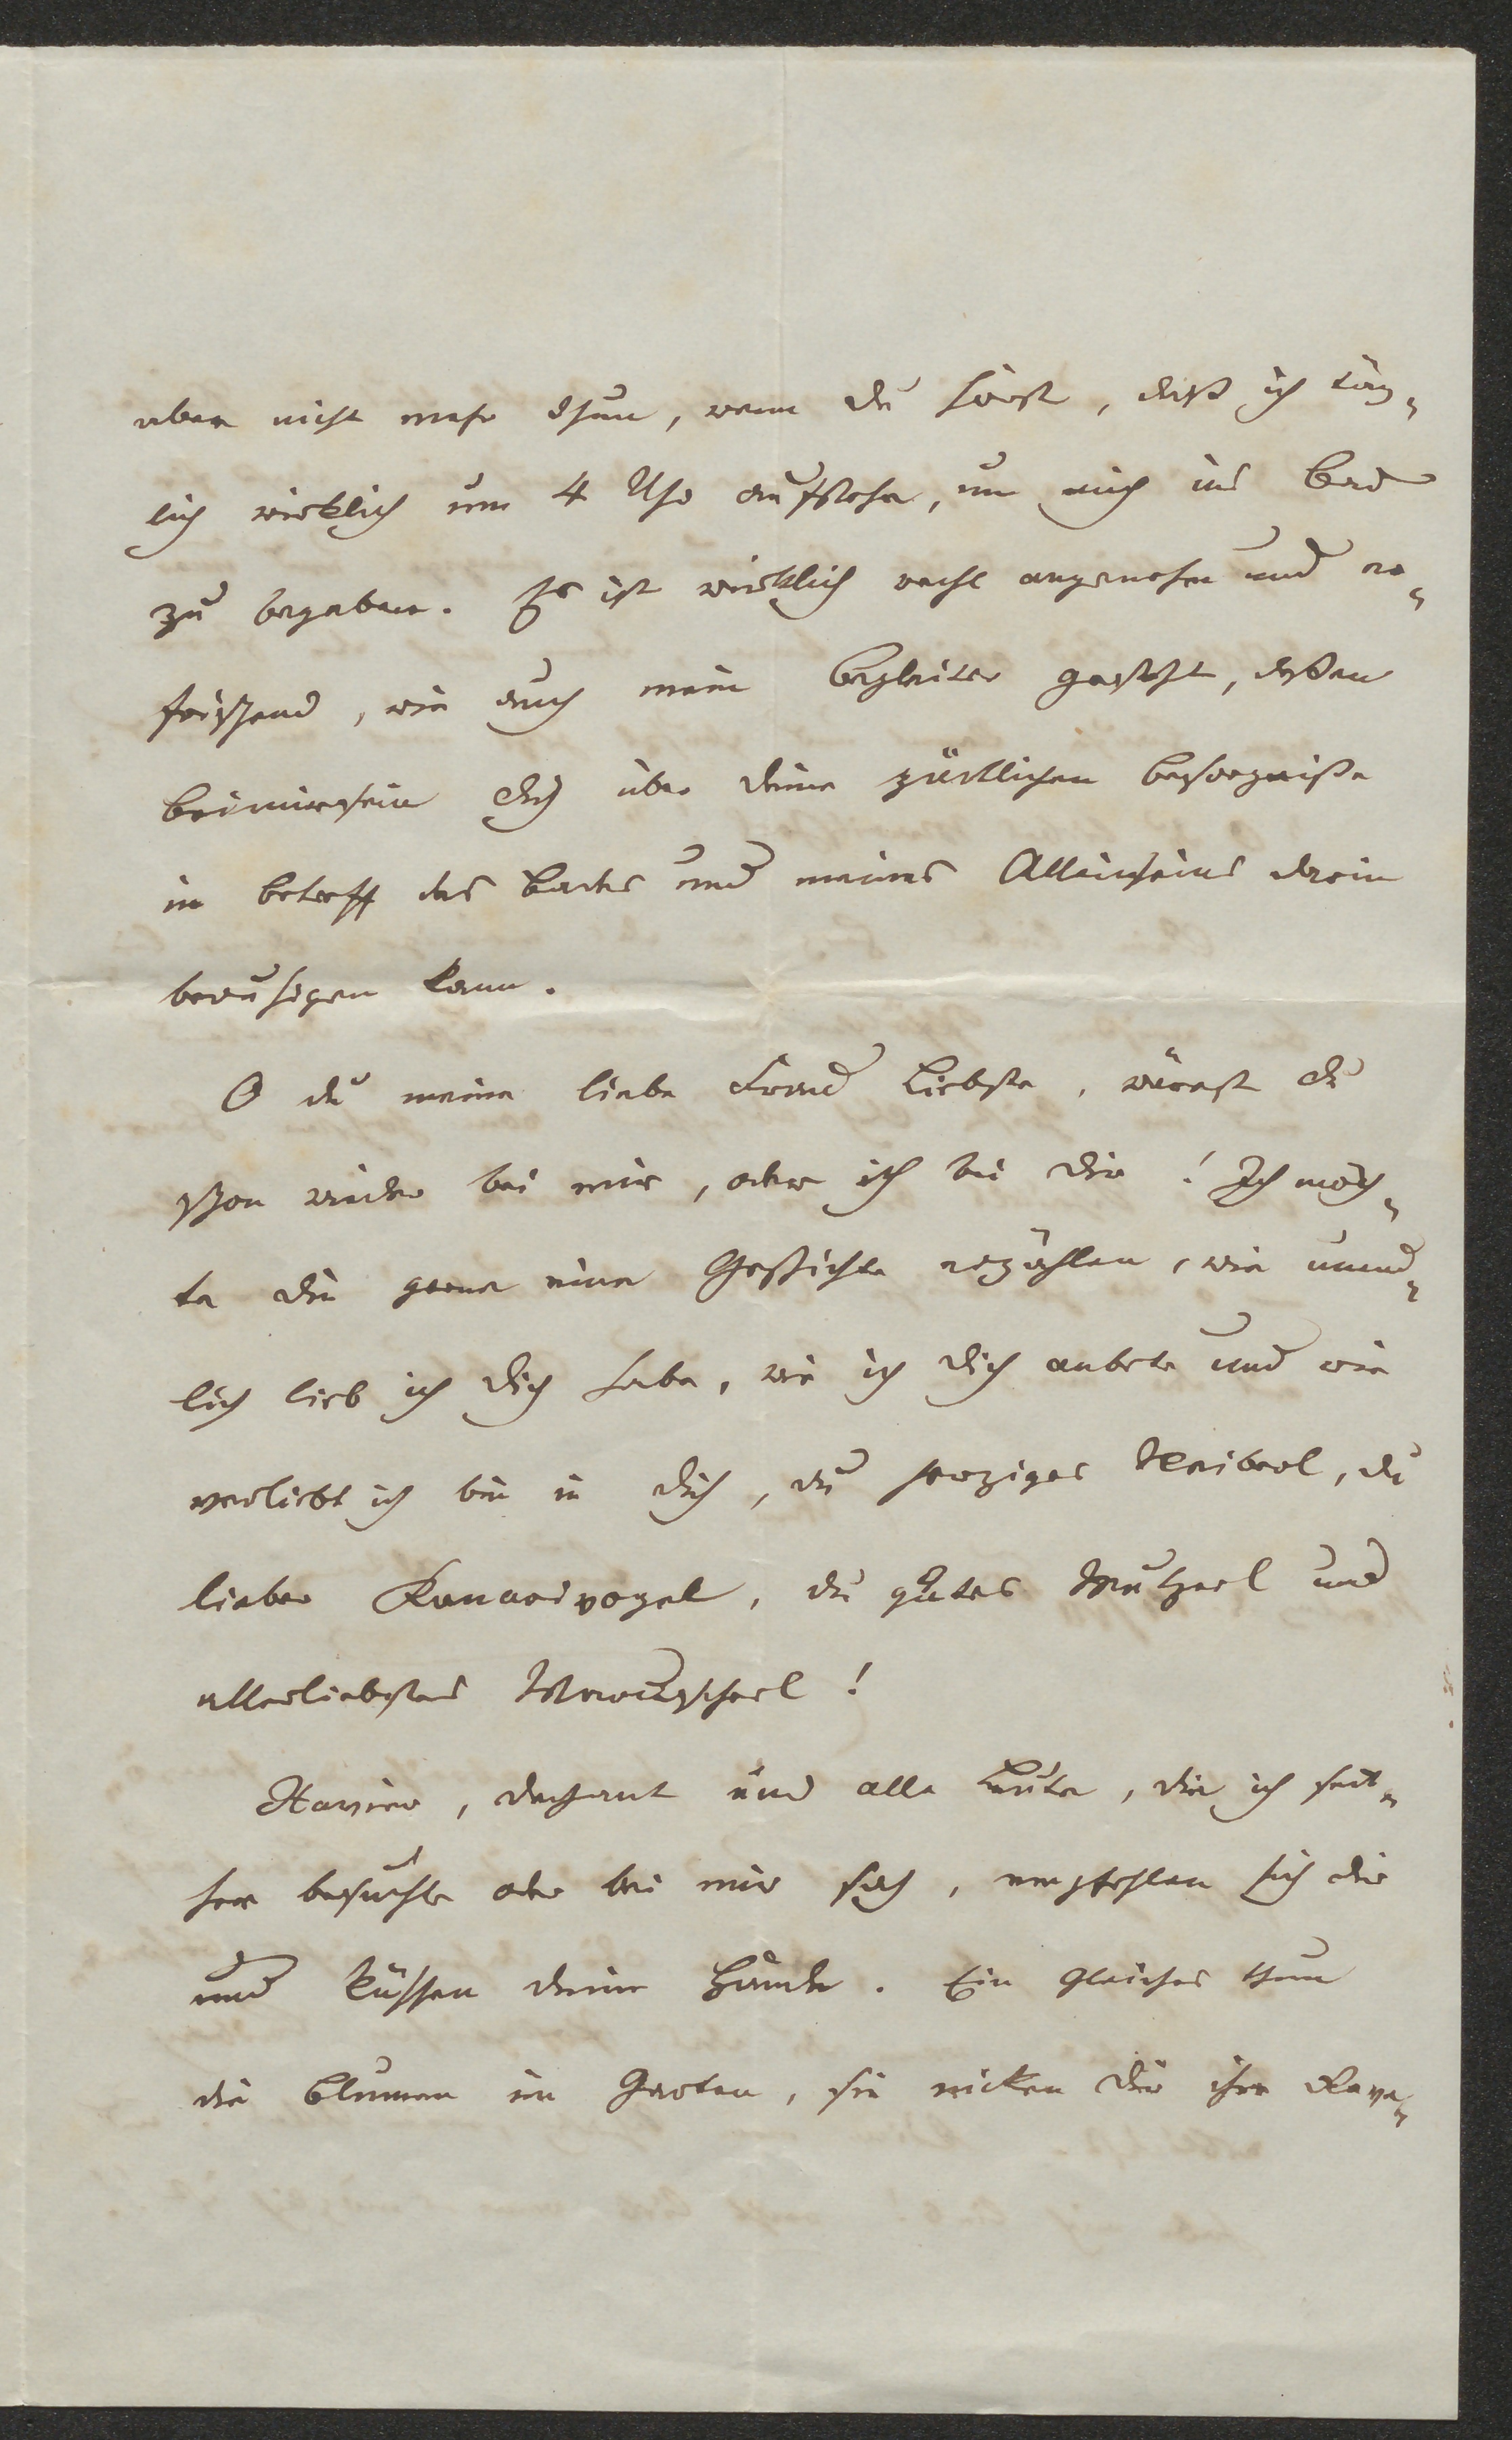 aber nicht mehr thun, wenn du hörst, daß ich täg-
lich wirklich um 4 Uhr aufstehe, um mich ins Bad
zu begeben. Es ist wirklich recht angenehm und er-
frischend, wie auch mein Begleiter gesteht, deßen
Beimirsein dich über deine zärtlichen Besorgniße
in betreff des Bades und meines Alleinseins darin
beruhigen kann.
O du meine liebe Liebste, wärest du
schon wieder bei mir, oder ich bei dir! Ich möch-
te dir gerne eine Geschichte erzählen, wie unend-
lich lieb ich dich habe, wie ich dich anbete und wie
verliebt ich bin in dich, du herziges Weiberl, du
lieber Kanarivogel, du gutes Mutzerl und
allerliebstes !
Xavier, Dechant und alle Leute, die ich seit-
her besuchte oder bei mir sah, empfehlen sich dir
und küssen deine Hände. Ein gleiches thun
die Blumen im Garten, sie nicken dir ihre